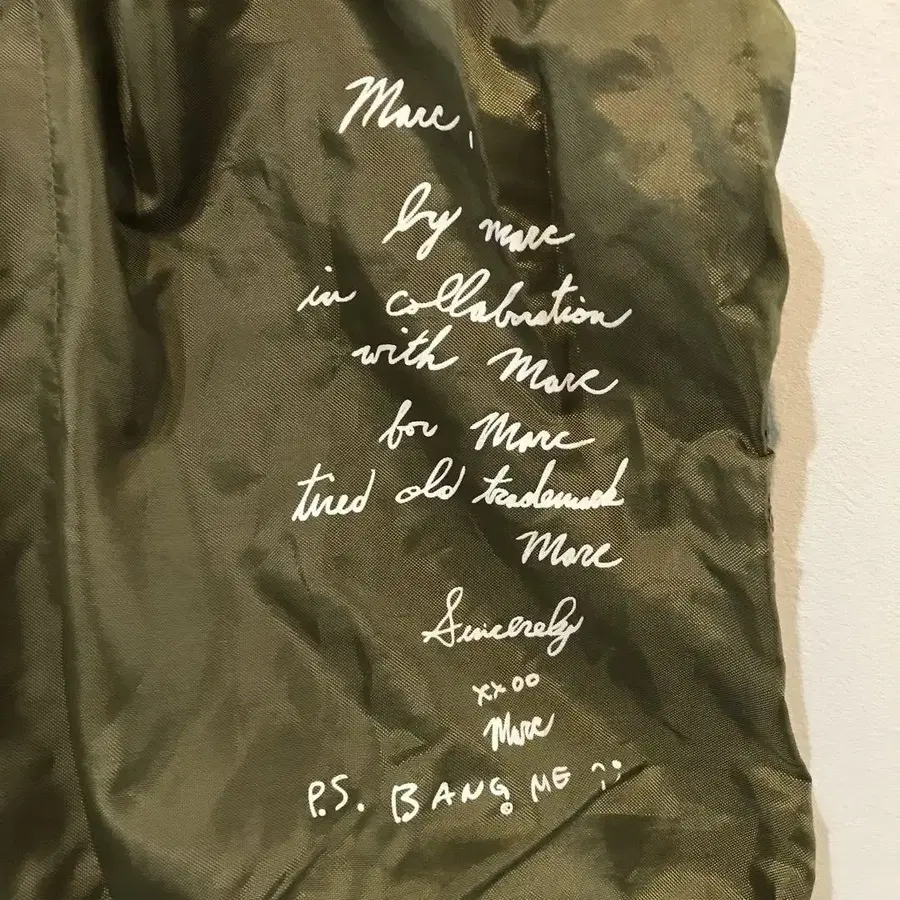 Marc,
by marc
in collaboration
with Marc
for Marc
tired old trademark
Marc
Sincerely
xxoo
Marc
P.S. BANG ME